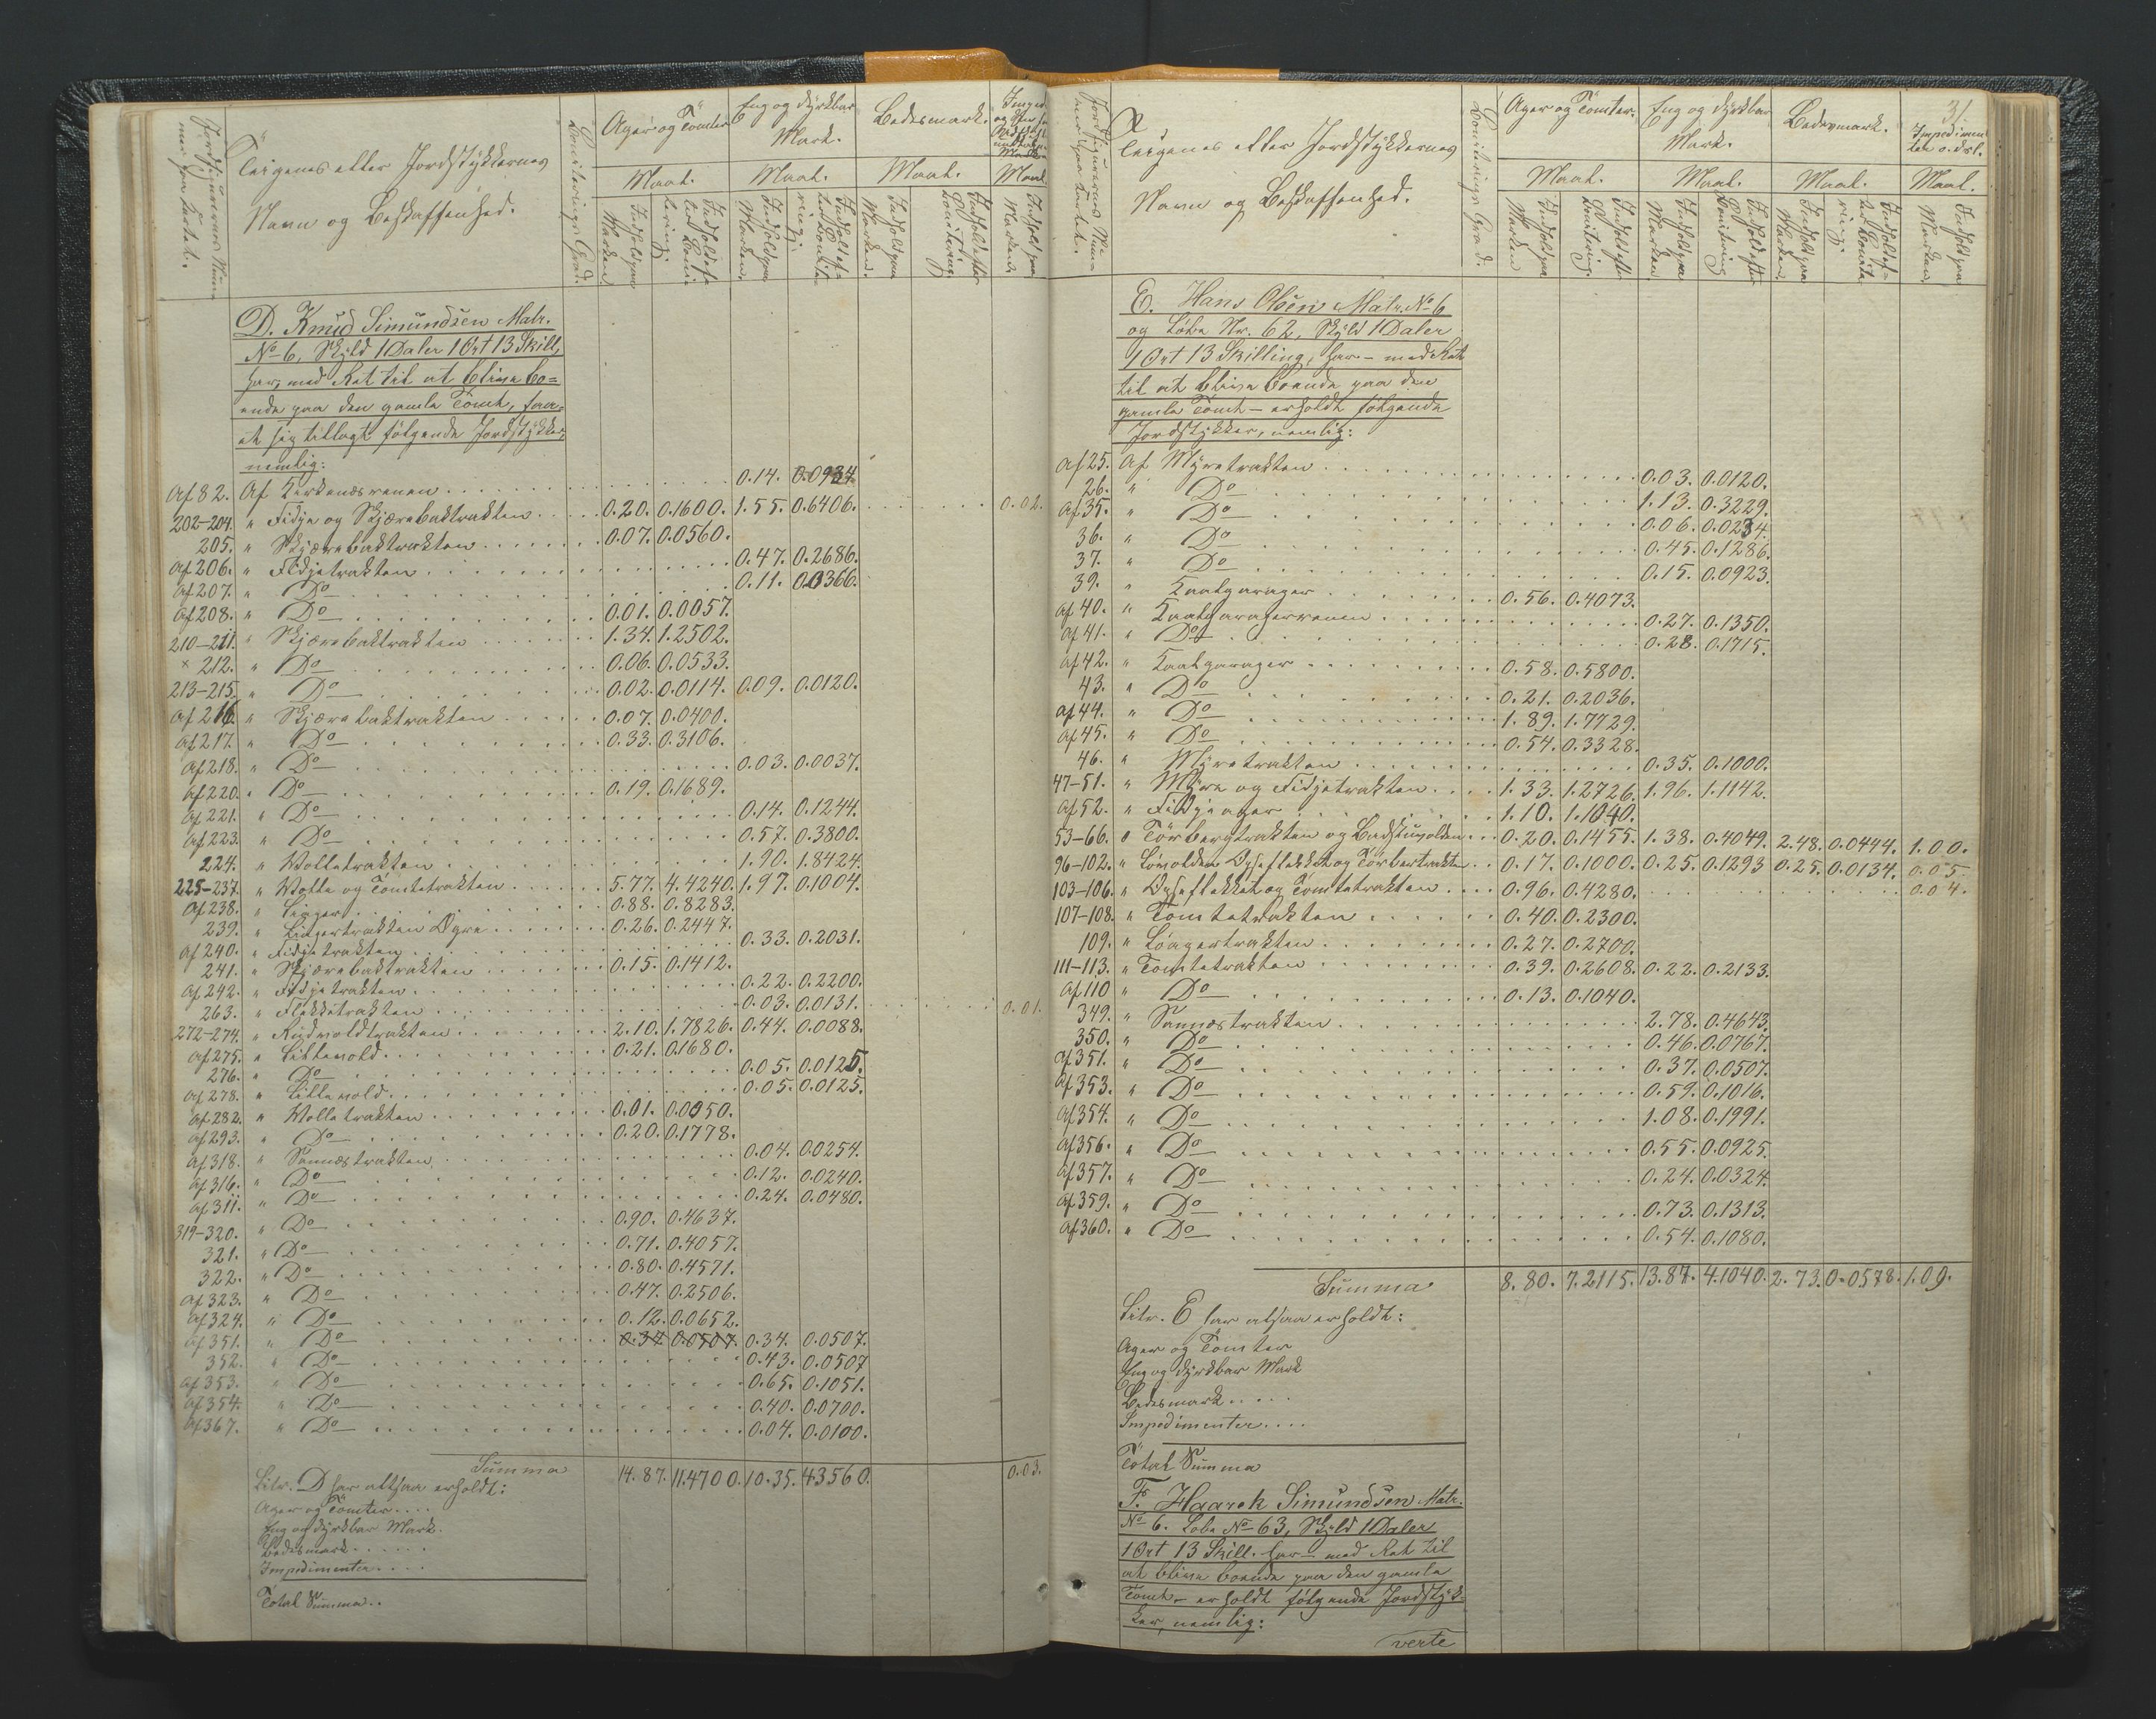 Jordfigurernes Num-
mer paa Kartet.
Teigenes eller Jordstykkernes
Navn og Beskaffenhed.
Boniterings Grad.
Ager og Tomter
Eng og dyrkbar
Mark.
Bedesmark.
Maal. Maal. Maal. Maal.
Indhold paa
Marken.
Indhold ef-
ter Boni-
tering.
Indhold paa
Marken.
Indhold ef-
ter Bonite-
ring.
Indhold paa
Marken.
Indhold efter
Bonitering.
Indhold paa
Marken.
D. Knud Simundsen Matr.
No 6, Skyld 1 Daler 1 Ort 13 Skill,
har, med Ret til at blive bo=
ende paa den gamle Tomt, faa-
et sig tillagt følgende Jordstykker,
nemlig:
Af 82. Af Kirkenæsrenen 0.14. 0.0934.
202-204. " Fidje og Skjærebaktrakten 0.20. 0.1600. 1.55. 0.6406. 0.02.
205. " Skjærebaktrakten 0.07. 0.0560.
Af 206. " Fidjetrakten 0.47. 0.2686.
Af 207. " Do 0.11. 0.0366.
Af 208. " Do 0.01. 0.0057.
210-211. " Skjærebaktrakten 1.34. 1.2502.
× 212. " Do 0.06. 0.0533.
213-215. " Do 0.02. 0.0114. 0.09. 0.0120.
Af 216. " Skjærebaktrakten 0.07. 0.0400.
Af 217. " Do 0.33. 0.3106.
Af 218. " Do 0.03. 0.0037.
Af 220. " Do 0.19. 0.1689.
Af 221. " Do 0.14. 0.1244.
Af 223. " Do 0.57. 0.3800.
224. " Volletrakten 1.90. 1.8424.
225-237. " Volle og Tomtetrakten 5.77. 4.4240. 1.97. 0.1004.
Af 238. " 0.88. 0.8283.
239. " 0.26. 0.2447.
Af 240. " Fidjetrakten 0.33. 0.2031.
241. " Skjærebaktrakten 0.15. 0.1412.
Af 242. " Fidjetrakten 0.22. 0.2200.
263. " Flekketrakten 0.03. 0.0131. 0.01.
272-274. " Rydvoldtrakten 2.10. 1.7826. 0.44. 0.0088.
Af 275. " Littevold 0.21. 0.1680.
276. " Do 0.05. 0.0125.
Af 278. " Littevold 0.05. 0.0125.
Af 282. " Volletrakten 0.01. 0.0050.
Af 293. " Do 0.20. 0.1778.
Af 318. " Sannæstrakten 0.04. 0.0254.
Af 316. " Do 0.12. 0.0240.
Af 311. " Do 0.24. 0.0480.
319-320. " Do 0.90. 0.4637.
321. " Do 0.71. 0.4057.
322. " Do 0.80. 0.4571.
Af 323. " Do 0.47. 0.2506.
Af 324. " Do 0.12. 0.0652.
Af 351. " Do 0.34 0.0507. 0.34. 0.0507.
352. " Do 0.43. 0.0507
Af 353. " Do 0.65. 0.1051.
Af 354. " Do 0.40. 0.0700.
Af 367. " Do 0.04. 0.0100.
Summa 14.87. 11.4700. 10.35. 4.3560. 0.03.
Litr. D har altsaa erholdt:
Ager og Tomter
Eng og dyrkbar Mark.
Bedesmark
Impedimenter
Total Summa
31
Jordfigurernes Num-
mer paa Kartet.
Teigenes eller Jordstykkernes
Navn og Beskaffenhed.
Boniterings Grad.
Ager og Tomter.
Eng og dyrkbar
Mark.
Bedesmark.
Impedimen-
ter o. dsl.
Maal. Maal. Maal. Maal.
Indhold paa
Marken
Indhold efter
Bonitering.
Indhold paa
Marken.
Indhold efter
Bonitering
Indhold paa
Marken.
Indhold ef-
ter Bonite-
ring.
Indhold paa
Marken
E. Hans Olsen Matr. No 6
og Løbe Nr. 62, Skyld 1 Daler
1 Ort 13 Skilling, har – med Ret
til at blive boende paa den
gamle Tomt – erholdt følgende
Jordstykker, nemlig:
Af 25. Af Myretrakten 0.03. 0.0120.
26. " Do 1.13. 0.3229.
Af 35. " Do 0.06. 0.0234.
36. " Do 0.45. 0.1286.
37. " Do 0.15. 0.0923.
39. " Kaalgarager 0.56. 0.4073.
Af 40. " Kaalgaragerrenen 0.27. 0.1350.
Af 41. " Do 0.28. 0.1715.
Af 42. " Kaalgarager 0.58. 0.5800.
43. " Do 0.21. 0.2036.
Af 44. " Do 1.89. 1.7729.
Af 45. " Do 0.54. 0.3328.
46. " Myretrakten 0.35. 0.1000.
47-51. " Myre og Fidjetrakten 1.33. 1.2726. 1.96. 1.1142.
Af 52. " Fidjeager 1.10. 1.1040.
53-66. " Törbergtrakten og Badstuvolden 0.20. 0.1455. 1.38. 0.4049. 2.48. 0.0444. 1.00.
96-102. " Løvolden Dyseflekket og Törbertrakten 0.17. 0.1000. 0.25. 0.1293 0.25. 0.0134. 0.05.
103-106. " Dyseflekket og Tomtetrakten 0.96. 0.4280. 0.04.
107-108. " Tomtetrakten 0.40. 0.2300.
109. " Løagertrakten 0.27. 0.2700.
111-113. " Tomtetrakten 0.39. 0.2608. 0.22. 0.2133.
Af 110 " Do 0.13. 0.1040.
349. " Sannæstrakten 2.78. 0.4643.
350. " Do 0.46. 0.0767.
Af 351. " Do 0.37. 0.0507.
Af 353. " Do 0.59. 0.1016.
Af 354. " Do 1.08. 0.1991.
Af 356. " Do 0.55. 0.0925.
Af 357. " Do 0.24. 0.0324.
Af 359. " Do 0.73. 0.1313.
Af 360. " Do 0.54. 0.1080.
Summa 8.80. 7.2115. 13.87. 4.1040. 2.73. 0.0578. 1.09.
Litr. E har altsaa erholdt:
Ager og Tomter
Eng og dyrkbar Mark
Bedesmark
Impedimenter
Total Summa
F. Haarek Simundsen Matr.
No 6. Løbe No 63, Skyld 1 Daler
1 Ort 13 Skill. har – med Ret til
at blive boende paa den gamle
Tomt – erholdt følgende Jordstyk-
ker, nemlig:
verte